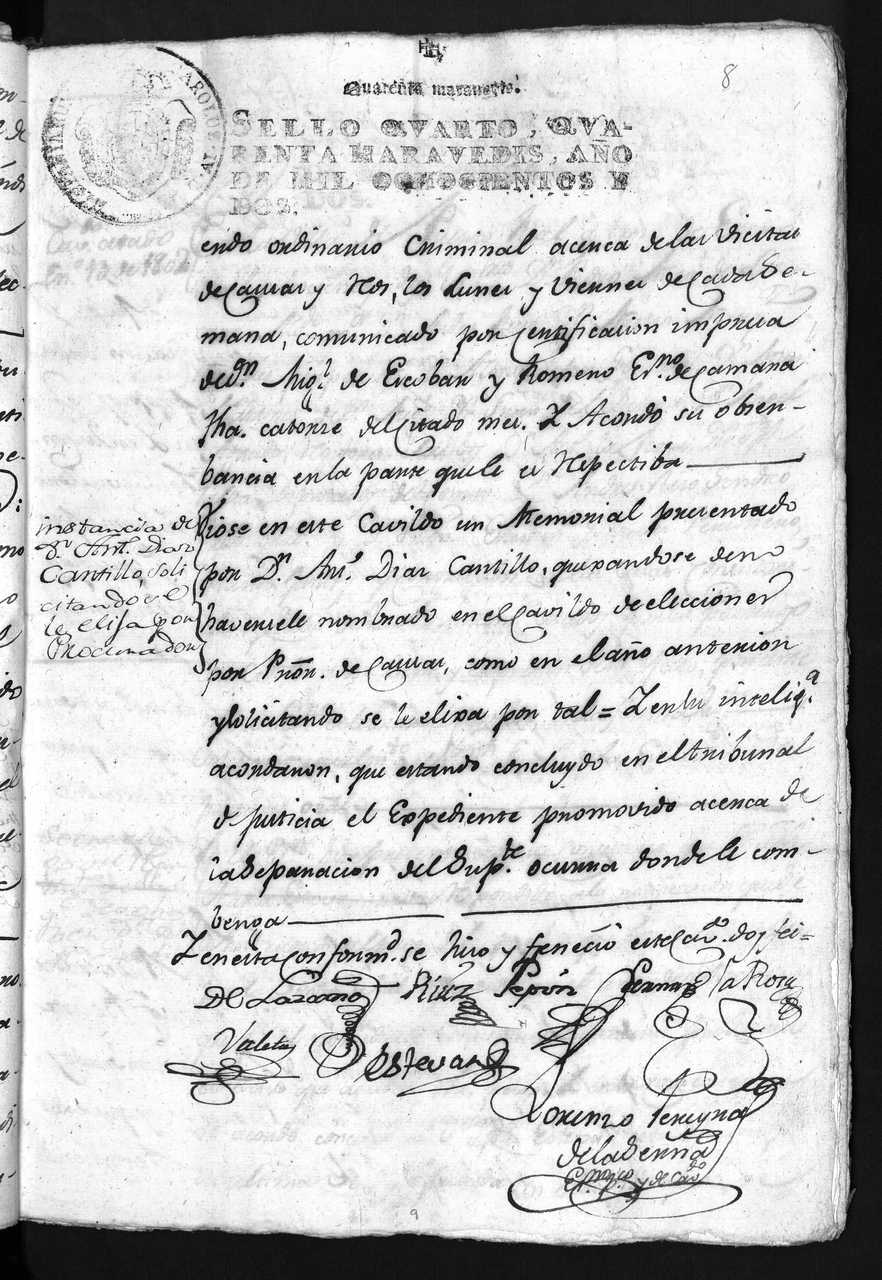 8
Quarenta maravedis.
SELLO QVARTO, QVA-
RENTA MARAVEDIS, AÑO
DE MIL OCHOCIENTOS Y
DOS.
endo ordinario Criminal acerca delas Vicitas
de Carzar y Reos, los Lunes y Viernes de Cada Se-
mana, comunicado por Certificacion impresa
de dn. Migl. de Escobar y Romero Esno. de Camara
fha. catorze del Citado mes. Y Acordó su obser-
bancia en la parte que le es respectiba
instancia de
dn. Antº. Diaz
Cantillo, soli
citando se
le elija por
Procurador
Viose en este Cavildo un Memorial presentado
por Dn. Antº. Diaz Cantillo, quexandose de no
haversele nombrado en el Cavildo de elecciones
por Pror. de Causas, como en el año anterior
y solicitando se le elixa por tal = Y en su intelig.ª
acordaron, que estando concluydo en el tribunal
de justicia el Expediente promovido acerca de
la Separacion del Supte. ocurra donde le com-
benga
Y en esta Conformd. se hizo y feneció este Cavdo. doy fee=
De Lazcano Ruiz Pepón Fernz. La Rosa
Valeta Estevan
Lorenzo Pereyra
de la Serna
Esno. ppco. y de Cavdo.
9